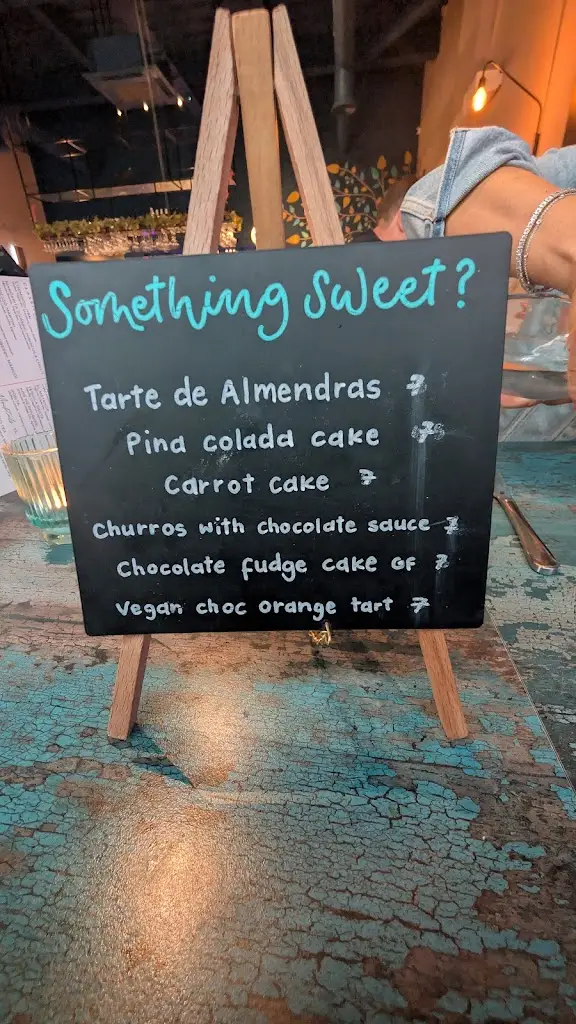 Something Sweet?
Tarte de Almendras 7
Pina colada cake 7
Carrot cake 7
Churros with chocolate sauce 7
Chocolate fudge cake GF 7
Vegan choc orange tart 7